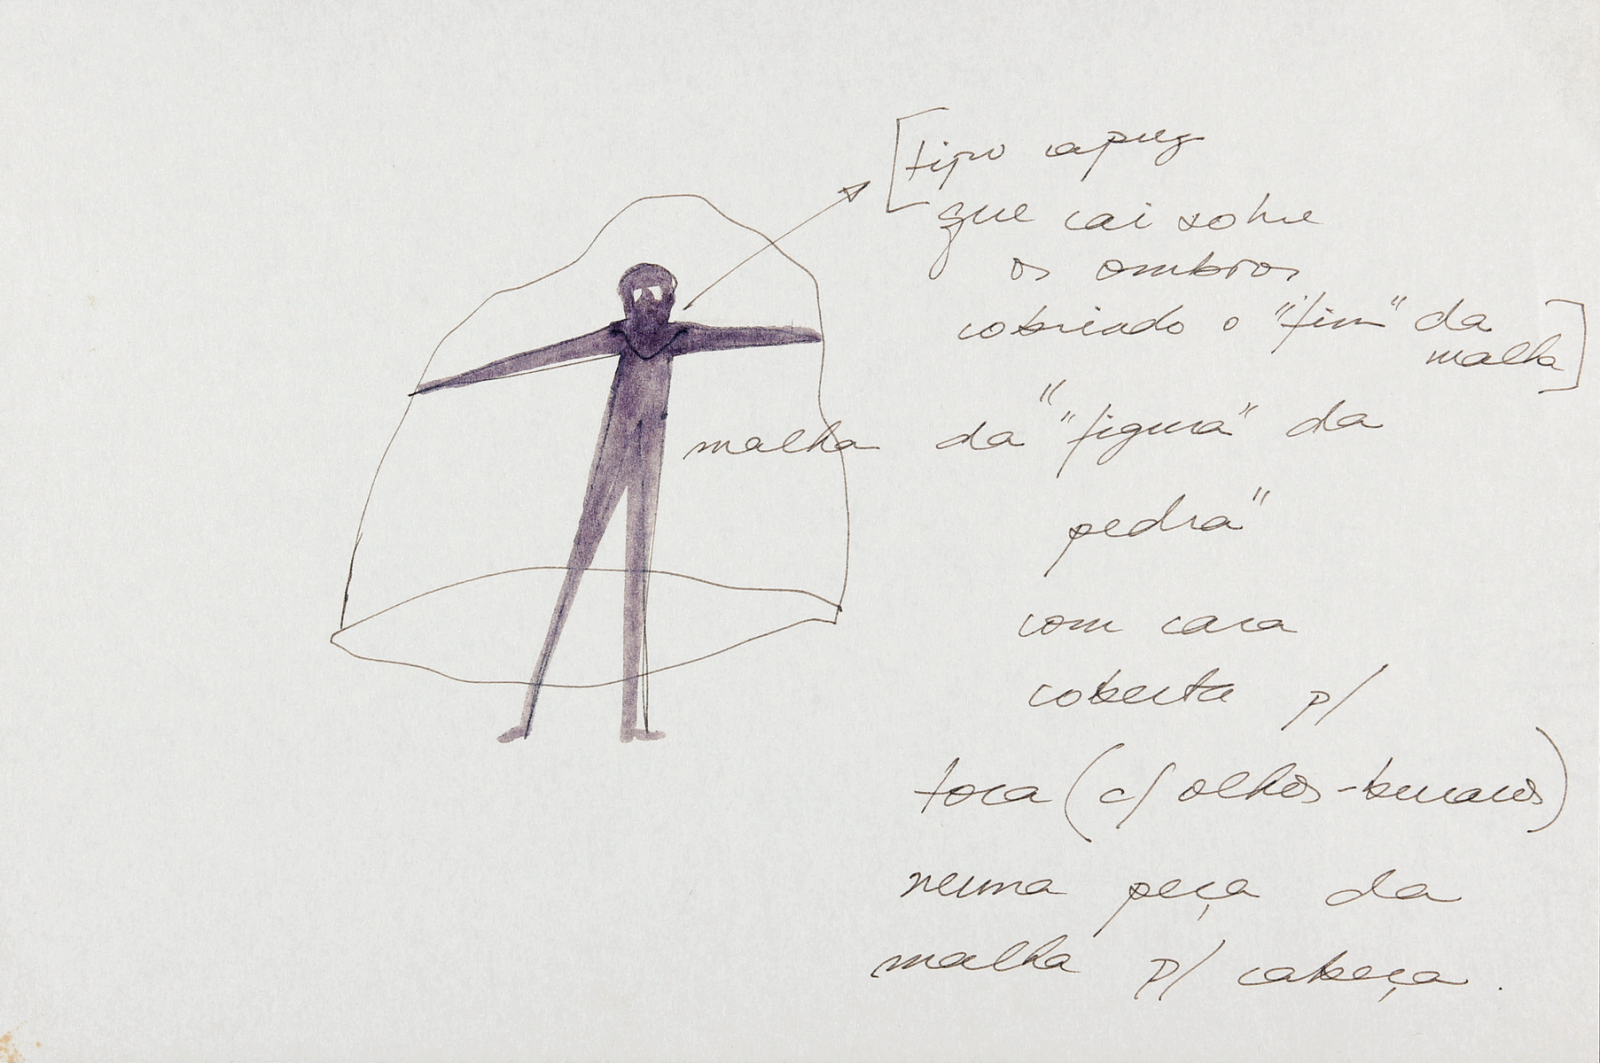 [tipo capuz
que cai sobre
os ombros
cobrindo o "fim" da
malha]
malha da ""figura" da
pedra"
com cara
coberta p/
toca (c/ olhos-buracos)
numa peça da
malha p/ cabeça.